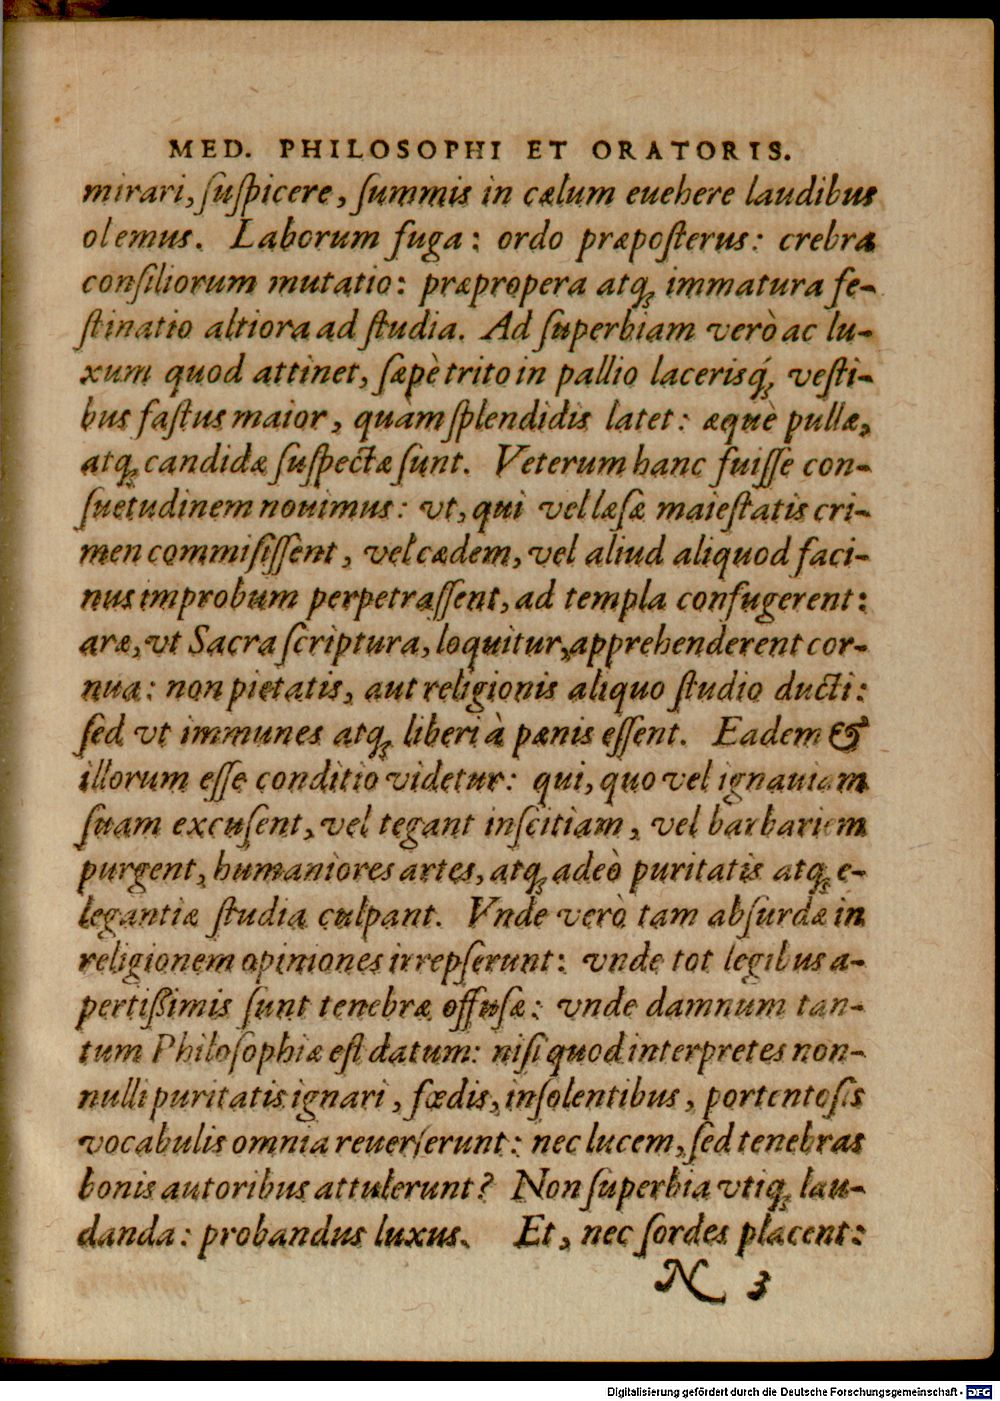 MED. PHILOSOPHI ET ORATORIS.
mirari, ſuſpicere, ſummis in cælum euehere laudibus
olemus. Laborum fuga: ordo præpoſterus: crebra
conſiliorum mutatio: præpropera atq; immatura fe-
ſtinatio altiora ad ſtudia. Ad ſuperbiam verò ac lu-
xum quod attinet, ſæpè trito in pallio laceriſq́; veſti-
bus faſtus maior, quam ſplendidis latet: æquè pullæ,
atq; candidæ ſuſpectæ ſunt. Veterum hanc fuiſſe con-
ſuetudinem nouimus: vt, qui vel læſæ maieſtatis cri-
men commiſiſſent, vel cædem, vel aliud aliquod faci-
nus improbum perpetraſſent, ad templa confugerent:
aræ, vt Sacra ſcriptura, loquitur, apprehenderent cor-
nua: non pietatis, aut religionis aliquo ſtudio ducti:
ſed vt immunes atq; liberi à pænis eſſent. Eadem &
illorum eſſe conditio videtur: qui, quo vel ignauiam
ſuam excuſent, vel tegant inſcitiam, vel barbariem
purgent, humaniores artes, atq; adeò puritatis atq; e-
legantiæ ſtudia culpant. Vnde verò tam abſurdæ in
religionem opiniones irrepſerunt: vnde tot legibus a-
pertißimis ſunt tenebræ offuſæ: vnde damnum tan-
tum Philoſophiæ eſt datum: niſi quod interpretes non-
nulli puritatis ignari, fœdis, inſolentibus, portentoſis
vocabulis omnia reuerſerunt: nec lucem, ſed tenebras
bonis autoribus attulerunt? Non ſuperbia vtiq; lau-
danda: probandus luxus. Et, nec ſordes placent:
N 3
Digitalisierung gefördert durch die Deutsche Forschungsgemeinschaft - DFG